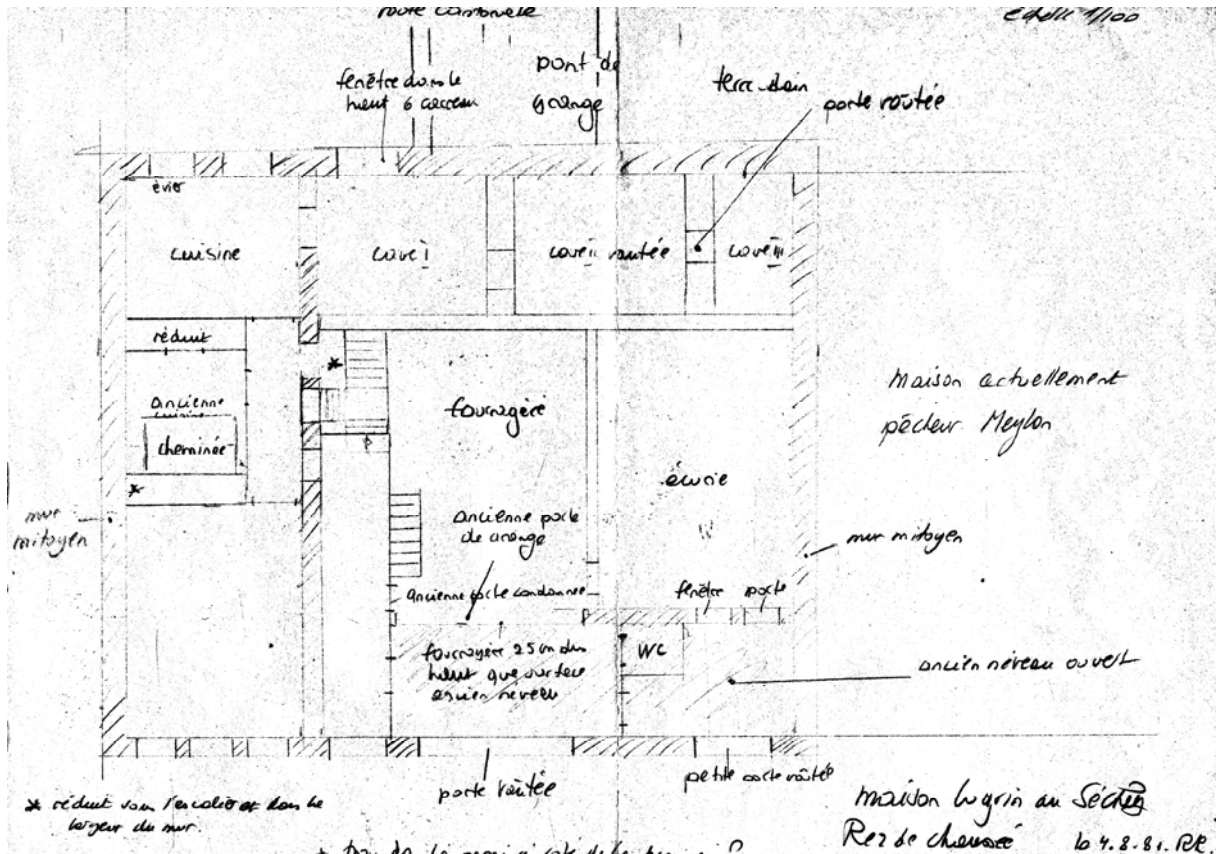 route cantonale
échelle 1/100
fenêtre dans le
haut 6 carreau
pont de
grange
terre-plain
porte voûtée
évier
cuisine
cave I
cave II voutée
cave III
réduit
*
ancienne
cuisine
cheminée
*
fourragère
écurie
W
maison actuellement
pêcheur Meylan
mur
mitoyen
ancienne porte
de grange
mur mitoyen
ancienne porte condamnée
fenêtre
porte
fourragère 25 cm plus
haut que surface
ancien néveau
WC
ancien néveau ouvert
porte voûtée
petite porte voûtée
* réduit sous l'escalier et dans la
largeur du mur.
maison Lugrin au Séchey
Rez de chaussée
le 4.8.81. RR.